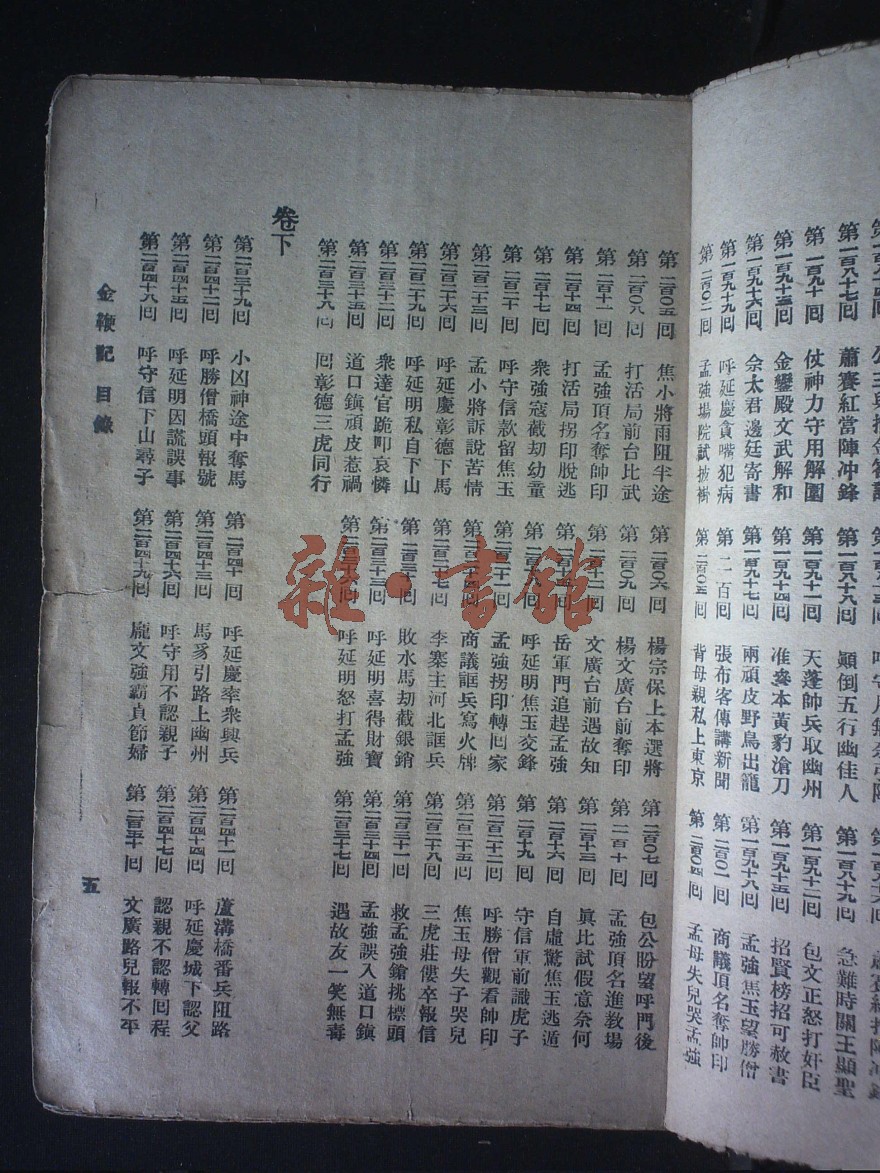 第一百八十七回　蕭賽紅當陣冲鋒　第一百八十八回　顛倒五行幽佳人　第一百八十九回　急難時關王顯聖
第一百九十回　仗神力守用解圍　第一百九十一回　天蓬帥兵取幽州　第一百九十二回　包文正怒打奸臣
第一百九十三回　金鑾殿文武解和　第一百九十四回　准叅本黃豹滄刀　第一百九十五回　招賢榜招可赦書
第一百九十六回　佘太君邊廷寄書　第一百九十七回　兩頑皮野鳥出籠　第一百九十八回　孟強焦玉望勝僧
第一百九十九回　呼延慶貪嘴犯病　第二百回　張布客傳講新聞　第二百〇一回　商議頂名奪帥印
第二百〇二回　孟強場院試披褂　第二百〇三回　背母親私上東京　第二百〇四回　孟母失兒哭孟強
第二百〇五回　焦小將雨阻半途　第二百〇六回　楊宗保上本選將　第二百〇七回　包公盼望呼門後
第二百〇八回　打活局前台比武　第二百〇九回　楊文廣台前奪印　第二百一十回　孟強頂名進教場
第二百十一回　孟強頂名奪帥印　第二百十二回　文廣台前遇故知　第二百十三回　眞比試假意奈何
第二百十四回　打活局拐印脫逃　第二百十五回　岳軍門追趕孟強　第二百十六回　自虛驚焦玉逃遁
第二百十七回　衆強寇截劫幼童　第二百十八回　呼延明焦玉交鋒　第二百十九回　守信軍前識虎子
第二百二十回　呼守信款留焦玉　第二百二十一回　孟強拐印轉回家　第二百二十二回　呼勝僧觀看帥印
第二百二十三回　孟小將訴說苦情　第二百二十四回　商議誆兵寫火牌　第二百二十五回　焦玉母失子哭兒
第二百二十六回　呼延慶彰德下馬　第二百二十七回　李寨主河北誆兵　第二百二十八回　三虎莊僂卒報信
第二百二十九回　呼延明私自下山　第二百三十回　敗水馬劫截銀銷　第二百三十一回　救孟強鎗挑標頭
第二百三十二回　衆達官跪叩哀憐　第二百三十三回　呼延明喜得財寶　第二百三十四回　孟強誤入道口鎮
第二百三十五回　道口鎮頑皮惹禍　第二百三十六回　呼延明怒打孟強　第二百三十七回　遇故友一笑無毒
第二百三十八回　回彰德三虎同行
卷下
第二百三十九回　小凶神途中奪馬　第二百四十回　呼延慶率衆興兵　第二百四十一回　蘆溝橋番兵阻路
第二百四十二回　呼勝僧橋頭報號　第二百四十三回　馬豹引路上幽州　第二百四十四回　呼延慶城下認父
第二百四十五回　呼延明因謊誤事　第二百四十六回　呼守用不認親子　第二百四十七回　認親不認轉回程
第二百四十八回　呼守信下山尋子　第二百四十九回　龐文強霸貞節婦　第二百五十回　文廣路兒報不平
金鞭記　目錄
五
雜·書館